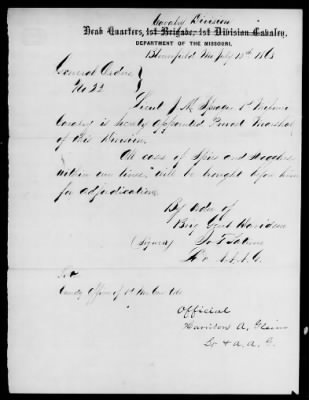 Cavalry Division
Head Quarters, 1st Brigade, 1st Division Cavalry.
DEPARTMENT OF THE MISSOURI.
Bloomfield Mo July 1863
General Orders
No 22
Lieut J. M. 1st
Cavalry is hereby appointed Provost Marshal
of this Division.
All cases of Spies and
within our lines will be brought before him
for adjudication.
By order of
Brig Genl Davidson
(Signed)
A. A. A. G.
Comdg Officer of 1st Cav
Official
A.
Lt & A. A. G.